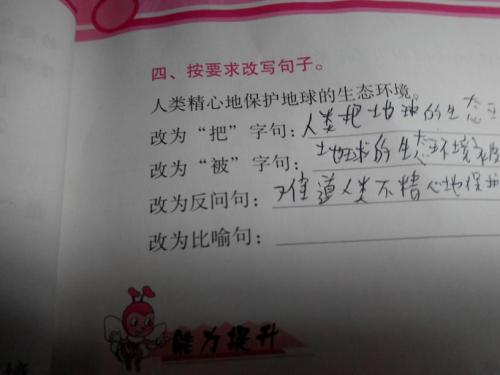 四、按要求改写句子。
人类精心地保护地球的生态环境。
改为“把”字句：人类把地球的生态
改为“被”字句：地球的生态环境
改为反问句：难道人类不精心地保护
改为比喻句：
能力提升